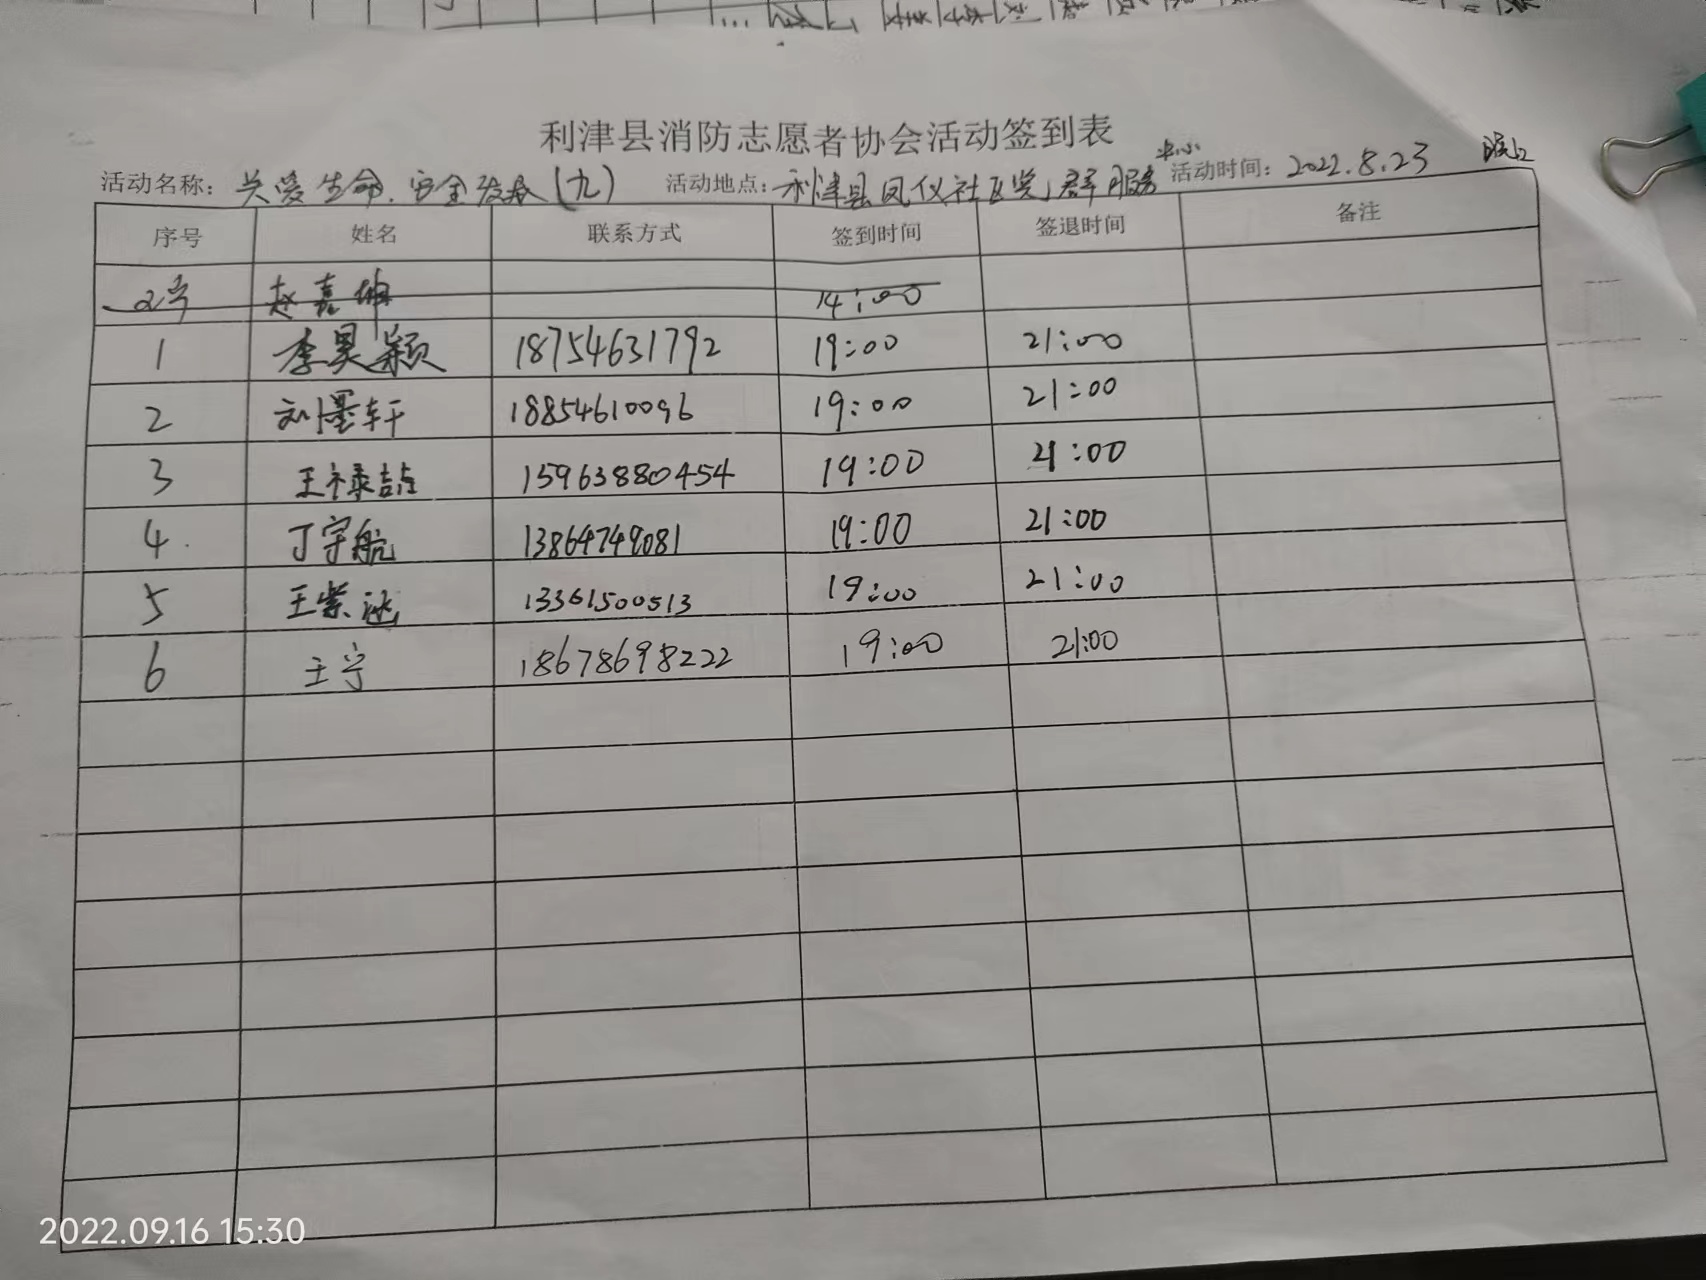 利津县消防志愿者协会活动签到表
活动名称：关爱生命.安全发展(九) 活动地点：利津县凤仪社区党群服务中心 活动时间：2022.8.23 晚上
序号 姓名 联系方式 签到时间 签退时间 备注
2号 赵嘉坤 14:00
1 李昊颖 18754631792 19:00 21:00
2 刘墨轩 18854610096 19:00 21:00
3 王禄喆 15963880454 19:00 21:00
4 丁宇航 13864749081 19:00 21:00
5 王紫涵 13361500513 19:00 21:00
6 王宁 18678698222 19:00 21:00
2022.09.16 15:30